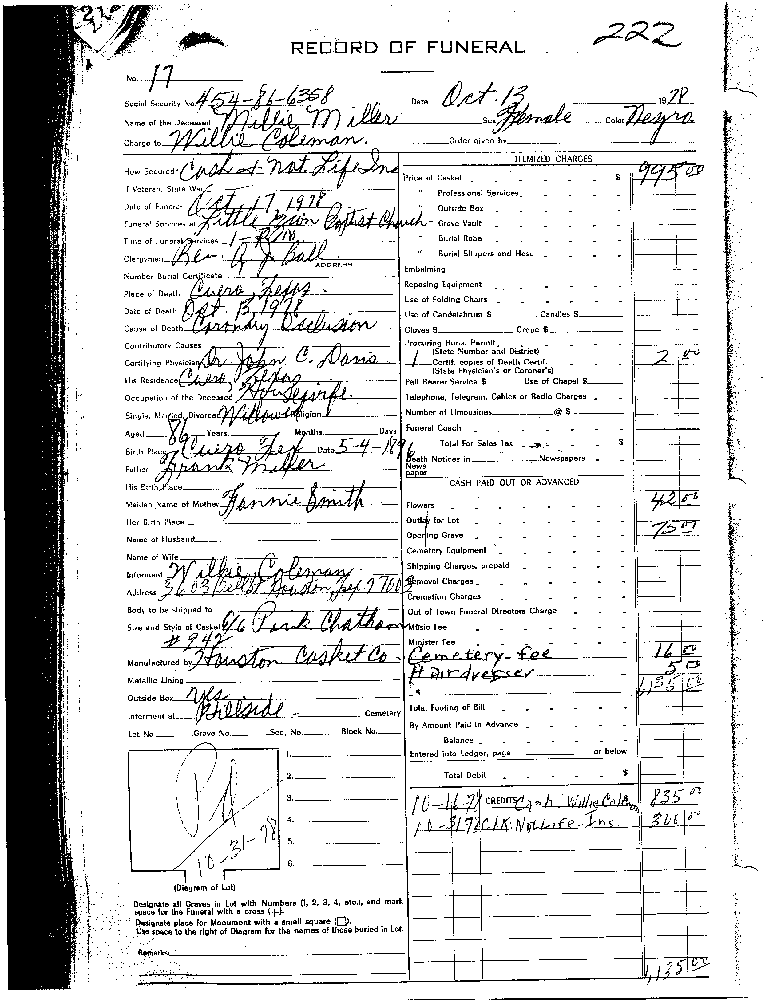 222
RECORD OF FUNERAL
No. 17
Social Security No. 454-86-6358 Date Oct. 13 1978
Name of the Deceased Millie Miller Sex Female Color Negro
Charge to Willie Coleman. Order given by
How Secured Cash & Nat. Life Ins
If Veteran, State War
Date of Funeral Oct 17, 1978
Funeral Services at Little Zion Baptist Church
Time of Funeral Services 1-
Clergyman Rev. Ball
ADDRESS
Number Burial Certificate
Place of Death Cuero, Texas.
Date of Death Oct. 13, 1978
Cause of Death Coronary Occlusion
Contributory Causes
Certifying Physician Dr John C. Davis
His Residence Cuero, Texas
Occupation of the Deceased Housewife
Single, Married, Divorced Widower Religion
Aged 86 Years Months Days
Birth Place Cuero Tex Date 5-4-1896
Father Frank Miller
His Birth Place
Maiden Name of Mother Fannie Smith
Her Birth Place
Name of Husband
Name of Wife
Informant Willie Coleman
Address 3603 Houston, Tex 77002
Body to be shipped to
Size and Style of Casket 6/6 Pink Chatham
#942
Manufactured by Houston Casket Co
Metallic Lining
Outside Box yes
Interment at Hillside Cemetery
Lot No. Grave No. Sec. No. Block No.
1.
2.
3.
4.
5.
6.
Pd
10-31-78
(Diagram of Lot)
Designate all Graves in Lot with Numbers (1, 2, 3, 4, etc.), and mark
space for the Funeral with a cross (+).
Designate place for Monument with a small square (□).
Use space to the right of Diagram for the names of those buried in Lot.
Remarks
ITEMIZED CHARGES
Price of Casket $ 995 00
" Professional Services
Outside Box
" Grave Vault
Burial Robe
" Burial Slippers and Hose
Embalming
Reposing Equipment
Use of Folding Chairs
Use of Candelabrum $ Candles $
Gloves $ Crepe $
Procuring Burial Permit
(State Number and District)
1 Certif. copies of Death Certif. 2 00
(State Physician's or Coroner's)
Pall Bearer Service $ Use of Chapel $
Telephone, Telegram, Cables or Radio Charges
Number of Limousines @ $
Funeral Coach
Total For Sales Tax $
Death Notices in Newspapers
News
paper
CASH PAID OUT OR ADVANCED
Flowers 42 00
Outlay for Lot
Opening Grave 75 00
Cemetery Equipment
Shipping Charges, prepaid
Removal Charges
Cremation Charges
Out of Town Funeral Directors Charge
Music Fee
Minister Fee
Cemetery-fee 16 00
Hairdresser 5 00
$ 1,135 00
Total Footing of Bill
By Amount Paid in Advance
Balance
Entered into Ledger, page or below
Total Debit $
10-16-78 CREDITS Cash Willie Coleman 835 00
10-31-78 CK: Nat Life Ins 300 00
1,135 00